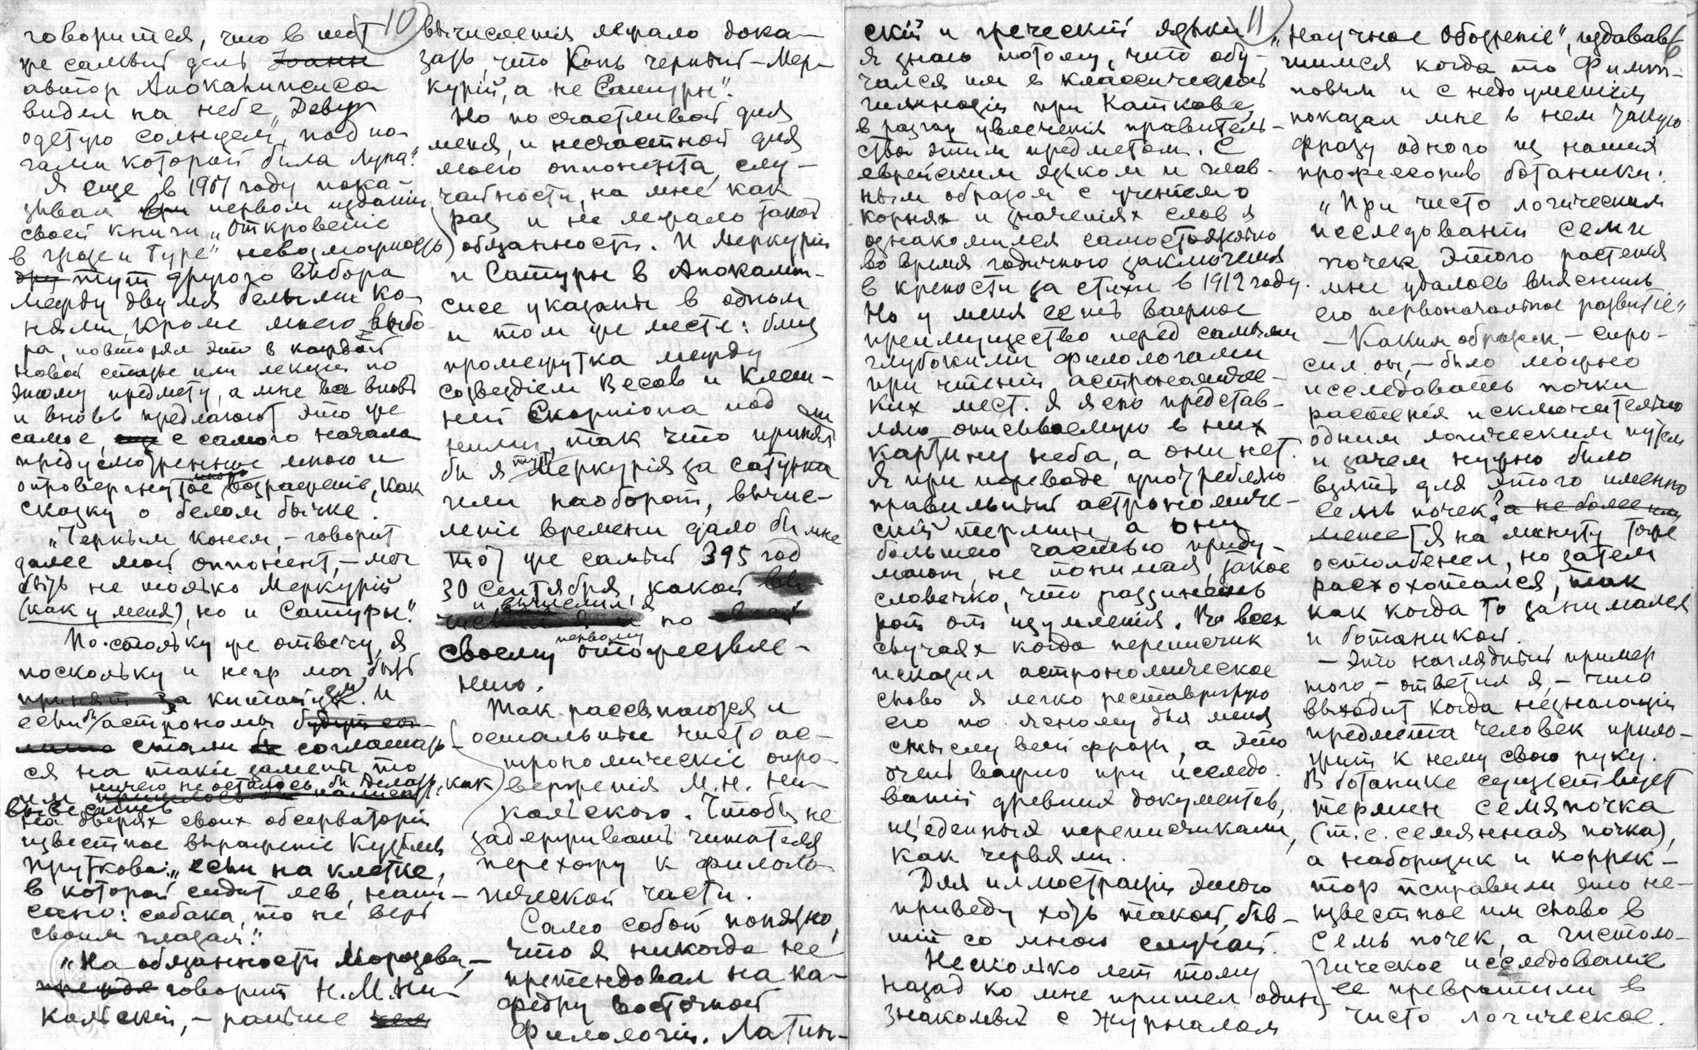 10
говорится, что в тот
же самый день Іоанн
автор Апокалипсиса
видел на небе „Деву
одетую солнцем, под но-
гами которой была луна."
Я еще в 1907 году пока-
зывал при первом издании
своей книги „Откровеніе
в грозе и буре" невозможность
тут другого выбора
между двумя белыми ко-
нями, кроме моего выбо-
ра, повторял это в каждой
новой статье или лекции по
этому предмету, а мне все вновь
и вновь предлагают это же
самое, с самого начала
предусмотренное мною и
опровергнутое мною возраженіе, как
сказку о белом бычке.
„Черным конем, – говорит
далее мой оппонент, – мог
быть не только Меркурій
(как у меня), но и Сатурн."
По-стольку же отвечу, я
поскольку и негр мог быть
принят за китайца. И
если бы астрономы
стали соглашать-
ся на такіе замены то
им ничего не осталось бы делать, как
вывесить
на дверях своих обсерваторій
известное выраженіе Кузьмы
Пруткова: „если на клетке,
в которой сидит лев, напи-
сано: собака, то не верь
своим глазам."
„На обязанности Морозова, –
говорит Н. М. Ни-
кольскій, – раньше
вычисленія лежало дока-
зать, что Конь черный – Мер-
курій, а не Сатурн".
Но по счастливой для
меня, и несчастной для
моего оппонента, слу-
чайности, на мне как
раз и не лежало такой
обязанности. И Меркурій
и Сатурн в Апокалип-
сисе указаны в одном
и том же месте: близ
промежутка между
созвездіем Весов и Клеш-
ней Скорпіона под
ними, так что принял
бы я тут Меркурія за Сатурна
или наоборот, вычис-
леніе времени дало бы мне
тот же самый 395 год
30 сентября, какой
и вычислил я
по
своему первому отожествле-
нію.
Так рассыпаются и
остальные чисто ас-
трономическіе опро-
верженія М. Н. Ни-
кольского. Чтобы не
задерживать читателя
перехожу к филоло-
гической части.
Само собой понятно,
что я никогда не
претендовал на ка-
федру восточной
филологіи. Латин-
11
6
скій и греческій языки
я знаю потому, что обу-
чался им в классической
гимназіи при Каткове,
в разгар увлеченія правитель-
ства этим предметом. С
еврейским языком и глав-
ным образом с ученіем о
корнях и значеніях слов я
ознакомился самостоятельно
во время годичного заключенія
в крепости за стихи в 1912 году.
Но у меня есть важное
преимущество перед самыми
глубокими филологами
при чтеніи астрономичес-
ких мест. Я ясно представ-
ляю описываемую в них
картину неба, а они нет.
Я при переводе употребляю
правильный астрономиче-
скій термин, а они
большею частью приду-
мают, не понимая, такое
словечко, что разинешь
рот от изумленія. Во всех
случаях когда переписчик
исказил астрономическое
слово я легко реставрирую
его по ясному для меня
смыслу всей фразы, а это
очень важно при исследо-
ваніи древних документов,
изъеденных переписчиками,
как червями.
Для иллюстраціи этого
приведу хоть такой, быв-
шій со мною случай.
Несколько лет тому
назад ко мне пришел один
знакомый с журналом
„Научное Обозреніе", издавав-
шимся когда то Филип-
повым и с недоуменіем
показал мне в нем такую
фразу одного из наших
профессоров ботаники:
„При чисто логическом
исследованіи семи
почек этого растенія
мне удалось выяснить
его первоначальное развитіе"
– Каким образом, – спро-
сил он, – было можно
исследовать почки
растенія исключительно
одним логическим путем
и зачем нужно было
взять для этого именно
семь почек? а не более и не
менее? Я на минуту тоже
остолбенел, но затем
расхохотался, так
как когда то занимался
и ботаникой.
– Это наглядный пример
того, – ответил я, – что
выходит когда незнающій
предмета человек прило-
жит к нему свою руку.
В ботанике существует
термин семяпочка
(т. е. семянная почка),
а наборщик и коррек-
тор исправили это не-
известное им слово в
семь почек, а гистоло-
гическое исследованіе
ее превратили в
чисто логическое.